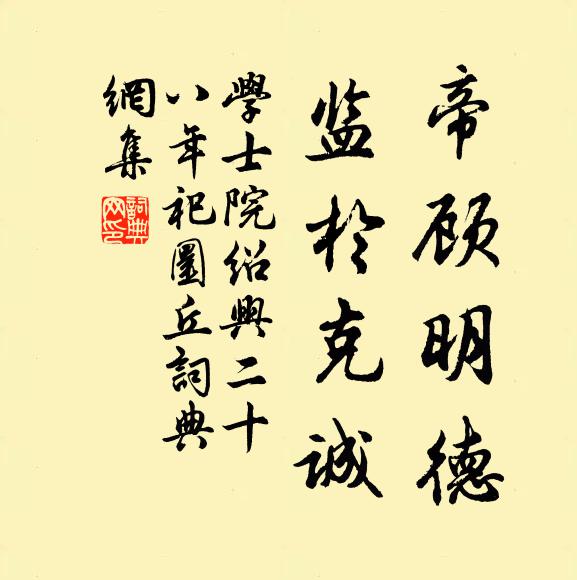 帝顾明德
监於克誠
學士院绍興二十
八年祀圜丘詞典
網集
詞典
网印